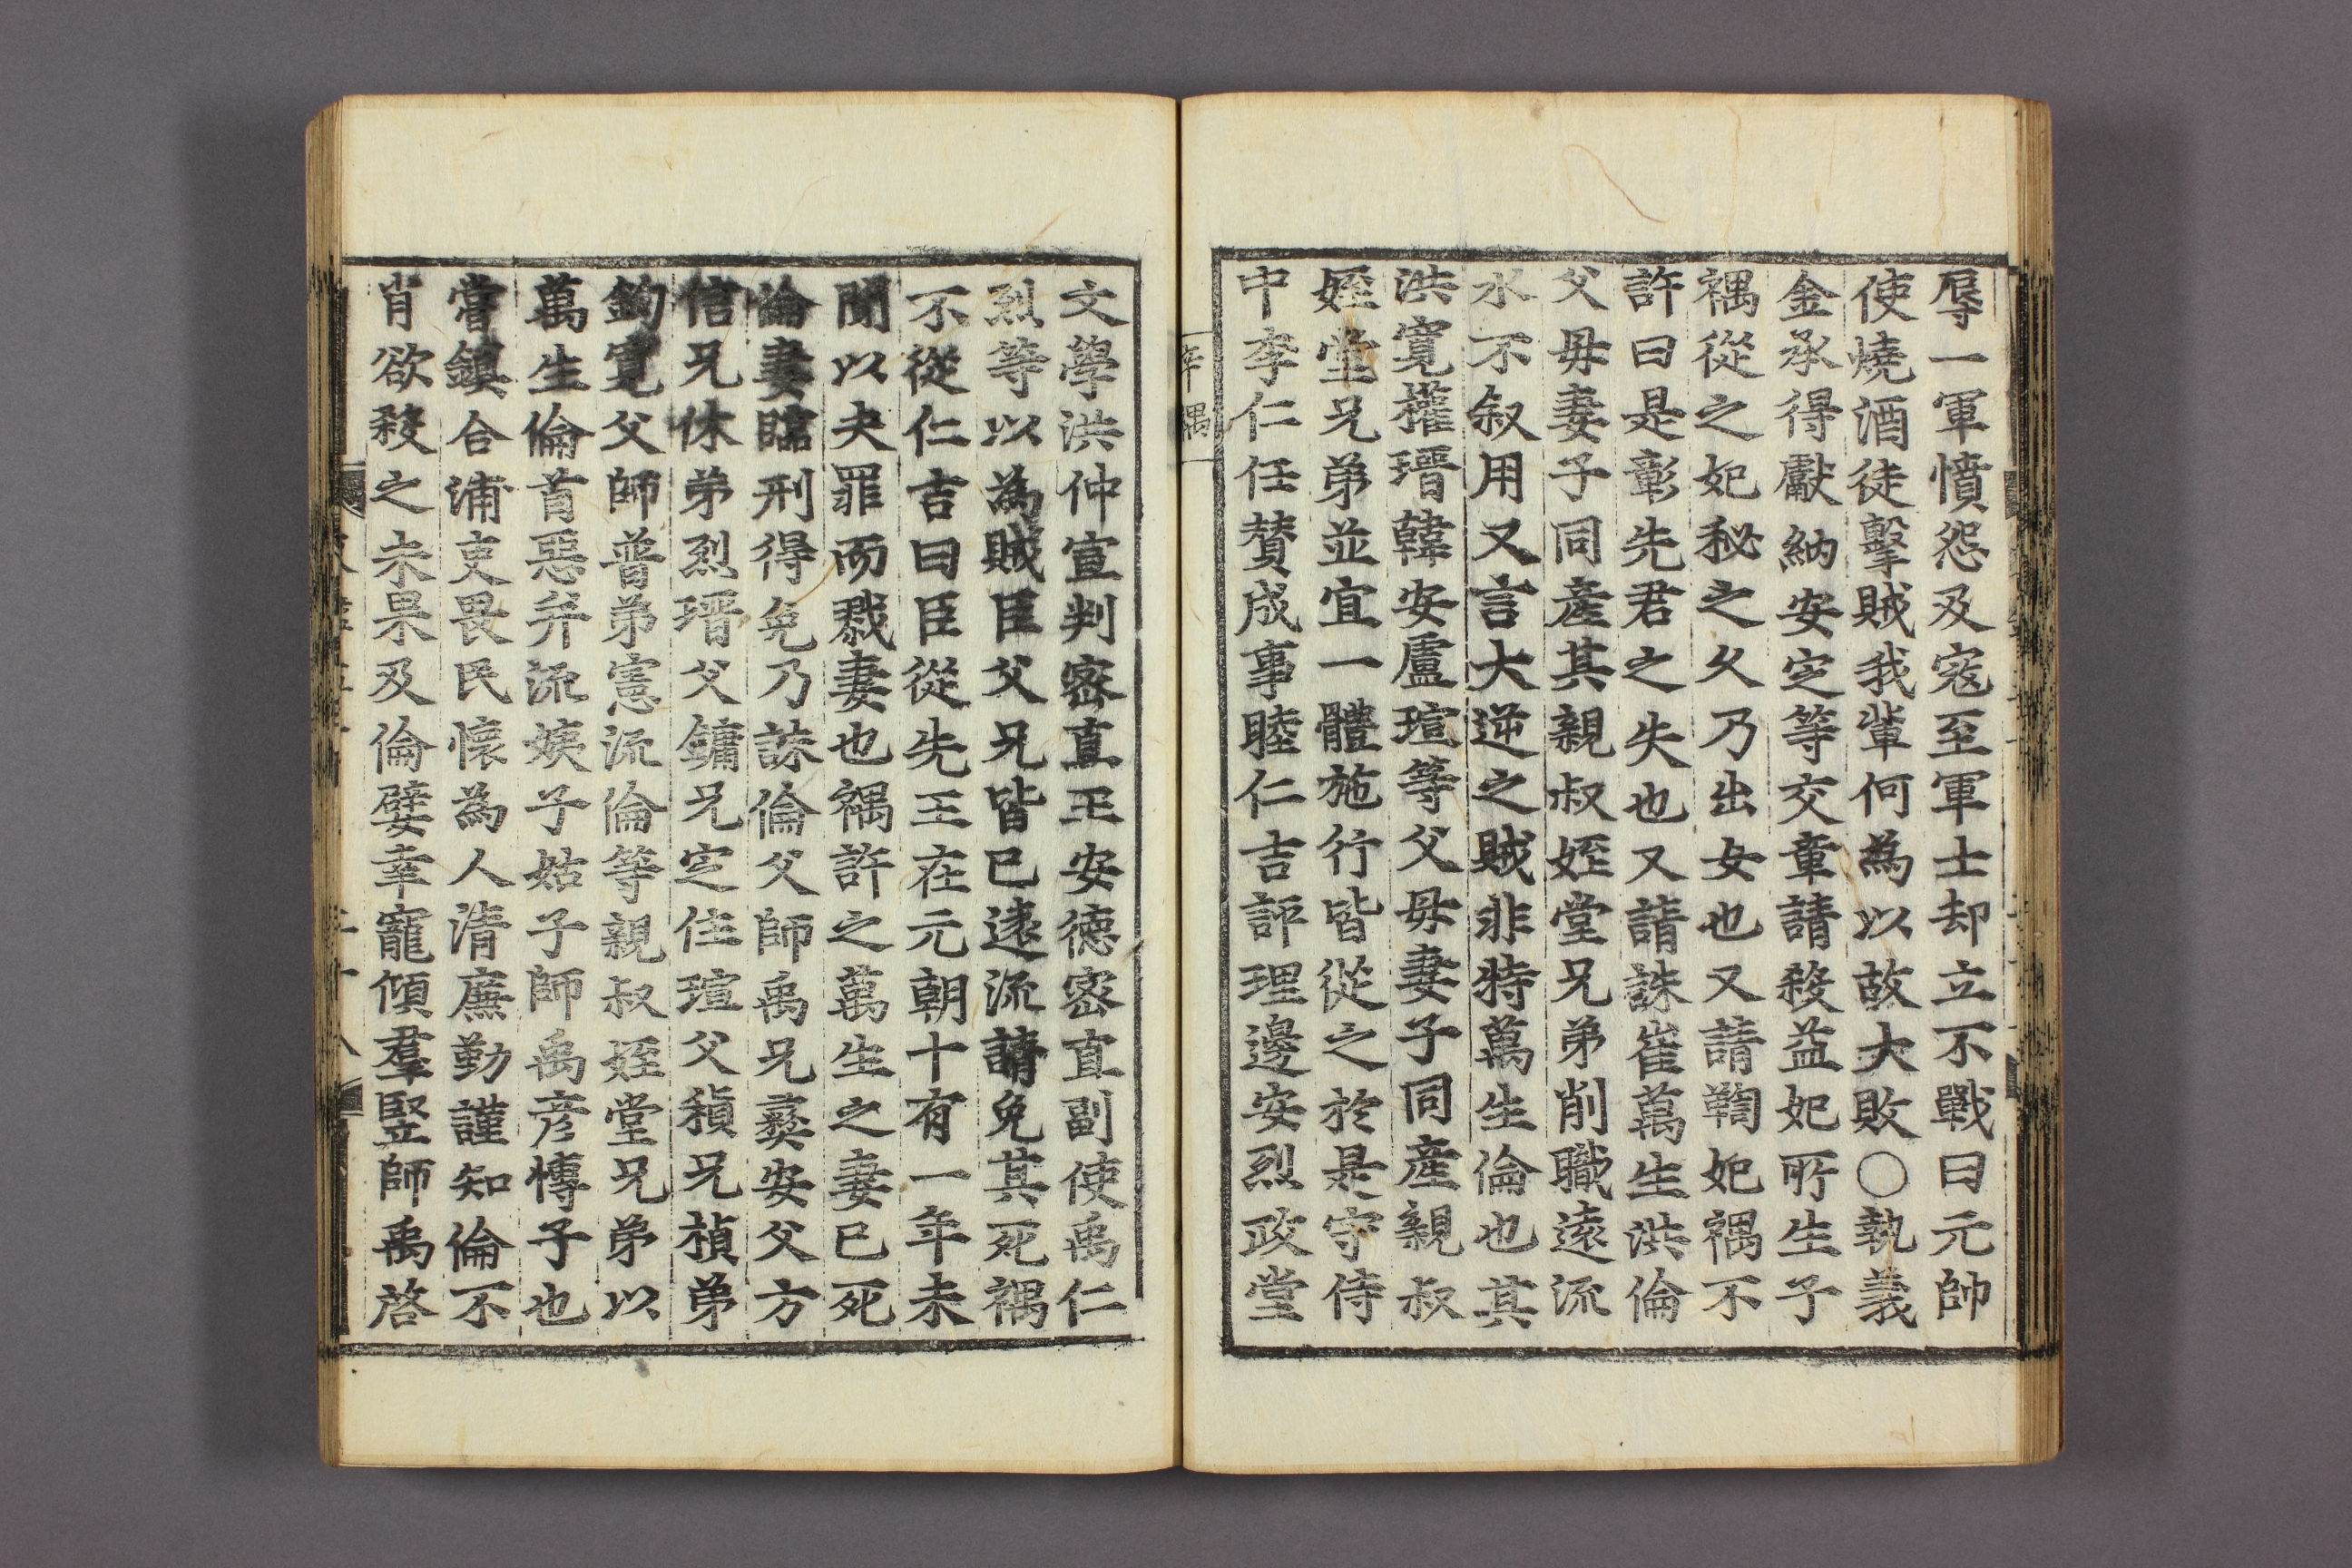 辱一軍憤怨及寇至軍士却立不戰曰元帥
使燒酒徒擊賊我軰何為以故大敗○執義
金承得獻納安定等交章請殺益妃所生子
禑從之妃秘之久乃出女也又請鞫妃禑不
許曰是彰先君之失也又請誅崔萬生洪倫
父毋妻子同産其親叔姪堂兄弟削職遠流
永不叙用又言大逆之賊非特萬生倫也其
洪寬權瑨韓安盧瑄等父毋妻子同産親叔
姪堂兄弟並宜一體施行皆從之於是守侍
中李仁任賛成事睦仁吉評理邊安烈政堂
辛禑
文學洪仲宣判密直王安德密直副使禹仁
烈等以為賊臣父兄皆已遠流請免其死禑
不從仁吉曰臣從先王在元朝十有一年未
聞以夫罪而戮妻也禑許之萬生之妻已死
倫妻臨刑得免乃誅倫父師禹兄彛安父方
信兄休弟烈瑨父鏞兄定住瑄父稹兄楨弟
鈞寬父師普弟憲流倫等親叔姪堂兄弟以
萬生倫首惡并流姨子姑子師禹彦博子也
嘗鎮合浦吏畏民懷為人清廉勤謹知倫不
肖欲殺之未果及倫嬖幸寵傾羣竪師禹啓